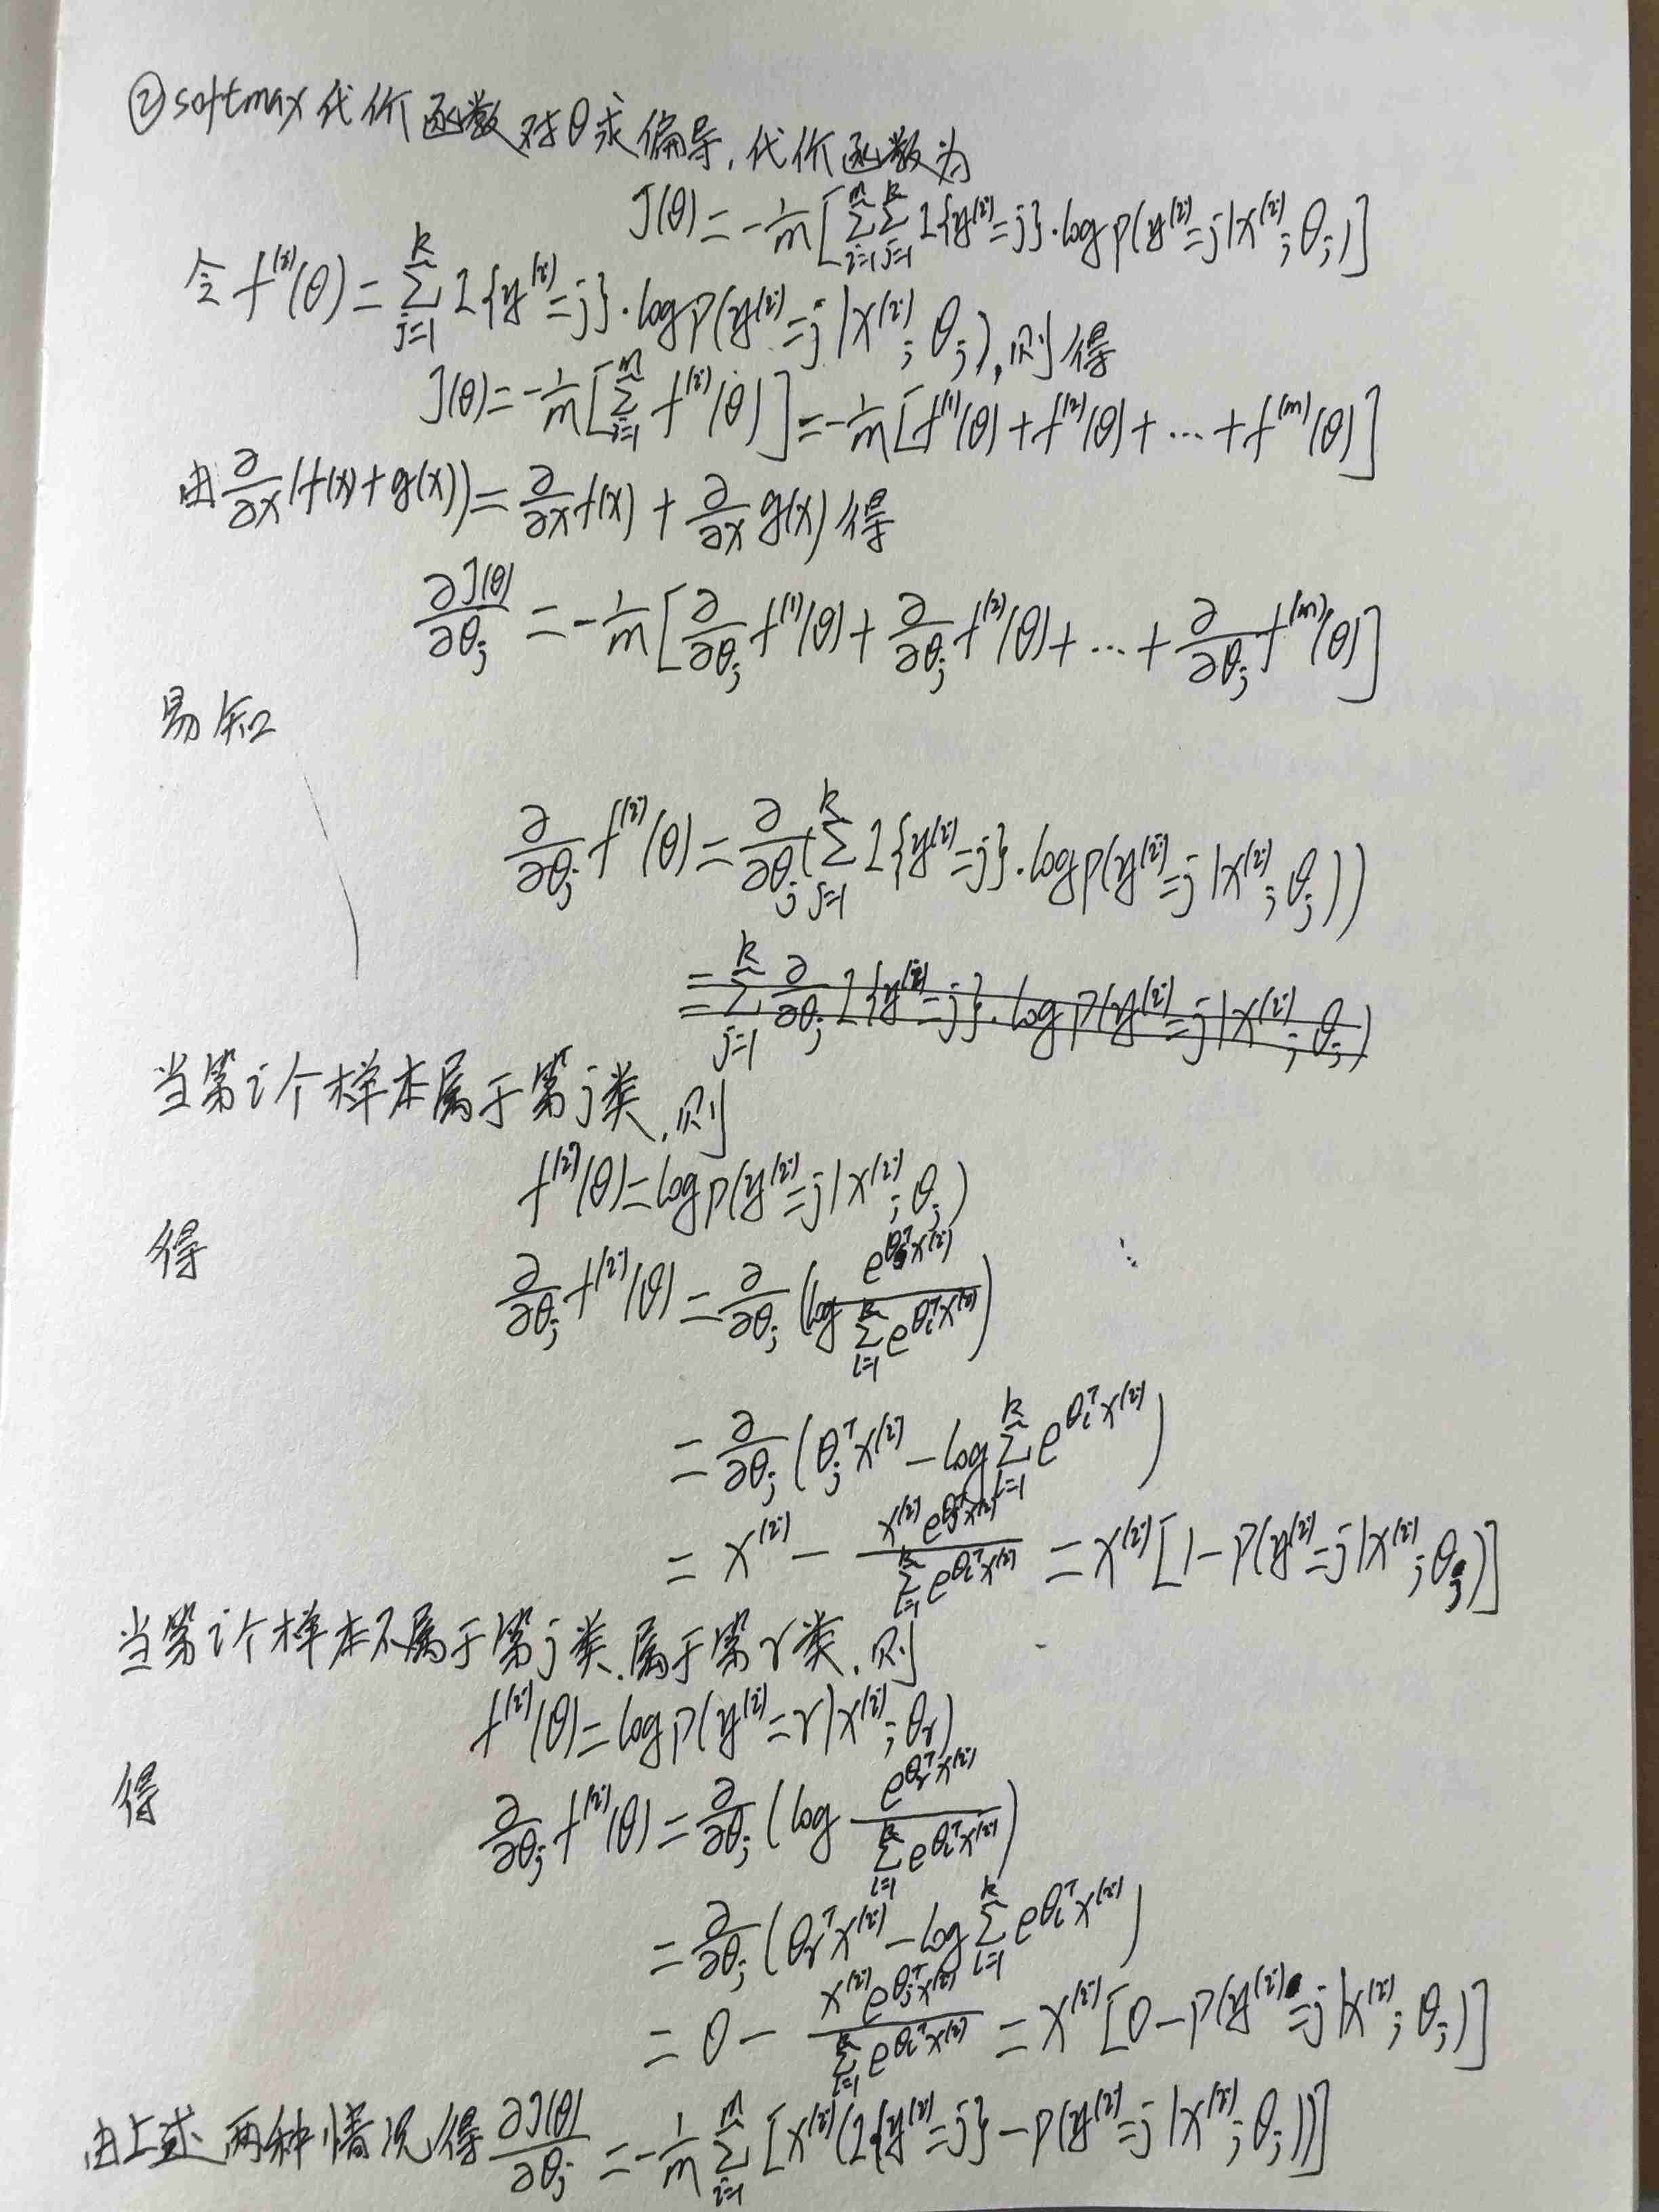 ②softmax代价函数对θ求偏导,代价函数为
J(θ)=-1/m[∑_{i=1}^{m}∑_{j=1}^{k}1{y^{(i)}=j}·log p(y^{(i)}=j|x^{(i)};θ_j)]
令f^{(i)}(θ)=∑_{j=1}^{k}1{y^{(i)}=j}·log p(y^{(i)}=j|x^{(i)};θ_j),则得
J(θ)=-1/m[∑_{i=1}^{m}f^{(i)}(θ)]=-1/m[f^{(1)}(θ)+f^{(2)}(θ)+…+f^{(m)}(θ)]
由∂/∂x(f(x)+g(x))=∂/∂x f(x)+∂/∂x g(x)得
∂J(θ)/∂θ_j=-1/m[∂/∂θ_j f^{(1)}(θ)+∂/∂θ_j f^{(2)}(θ)+…+∂/∂θ_j f^{(m)}(θ)]
易知
∂/∂θ_j f^{(i)}(θ)=∂/∂θ_j(∑_{j=1}^{k}1{y^{(i)}=j}·log p(y^{(i)}=j|x^{(i)};θ_j))
=∑_{j=1}^{k}∂/∂θ_j 1{y^{(i)}=j}·log p(y^{(i)}=j|x^{(i)};θ_j)
当第i个样本属于第j类,则
f^{(i)}(θ)=log p(y^{(i)}=j|x^{(i)};θ_j)
得
∂/∂θ_j f^{(i)}(θ)=∂/∂θ_j(log e^{θ_j^T x^{(i)}}/∑_{l=1}^{k}e^{θ_l^T x^{(i)}})
=∂/∂θ_j(θ_j^T x^{(i)}-log∑_{l=1}^{k}e^{θ_l^T x^{(i)}})
=x^{(i)}-x^{(i)}e^{θ_j^T x^{(i)}}/∑_{l=1}^{k}e^{θ_l^T x^{(i)}}=x^{(i)}[1-p(y^{(i)}=j|x^{(i)};θ_j)]
当第i个样本不属于第j类,属于第r类,则
f^{(i)}(θ)=log p(y^{(i)}=r|x^{(i)};θ_r)
得
∂/∂θ_j f^{(i)}(θ)=∂/∂θ_j(log e^{θ_r^T x^{(i)}}/∑_{l=1}^{k}e^{θ_l^T x^{(i)}})
=∂/∂θ_j(θ_r^T x^{(i)}-log∑_{l=1}^{k}e^{θ_l^T x^{(i)}})
=0-x^{(i)}e^{θ_j^T x^{(i)}}/∑_{l=1}^{k}e^{θ_l^T x^{(i)}}=x^{(i)}[0-p(y^{(i)}=j|x^{(i)};θ_j)]
由上述两种情况得∂J(θ)/∂θ_j=-1/m∑_{i=1}^{m}[x^{(i)}(1{y^{(i)}=j}-p(y^{(i)}=j|x^{(i)};θ_j))]